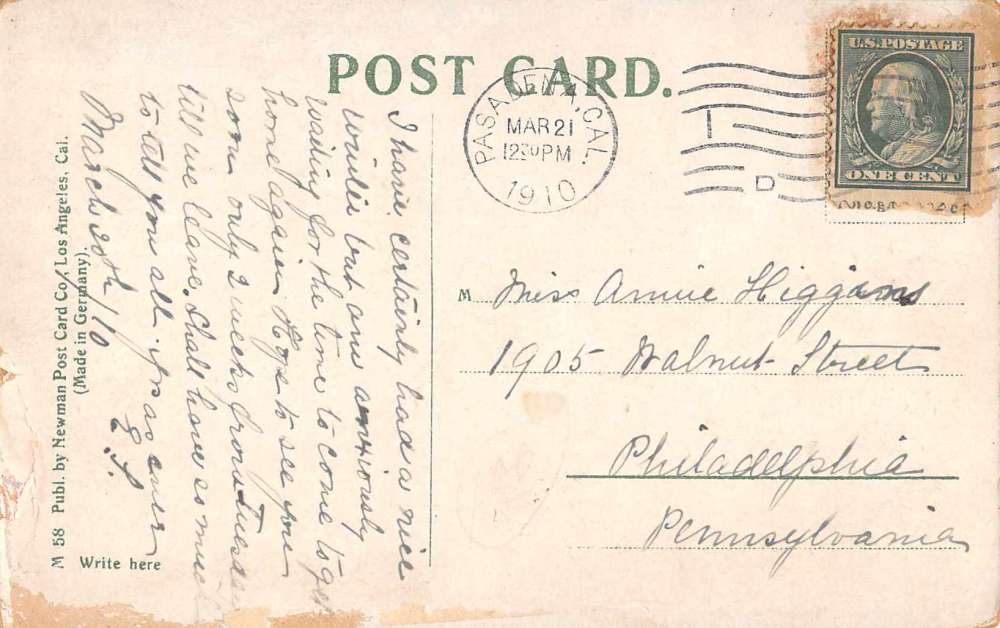 POST CARD.
PASADENA, CAL.
MAR 21
12 30 PM
1910
D
U.S. POSTAGE
ONE CENT
I have certainly had a nice
winter but am anxiously
waiting for the time to come to get
home again. Hope to see you
soon only 2 weeks from tuesday
till we leave. Shall have so much
to tell you all.
March 20th/10
M Miss Annie Higgans
1905 Walnut Street
Philadelphia
Pennsylvania
M 58 Publ. by Newman Post Card Co., Los Angeles, Cal.
(Made in Germany).
Write here